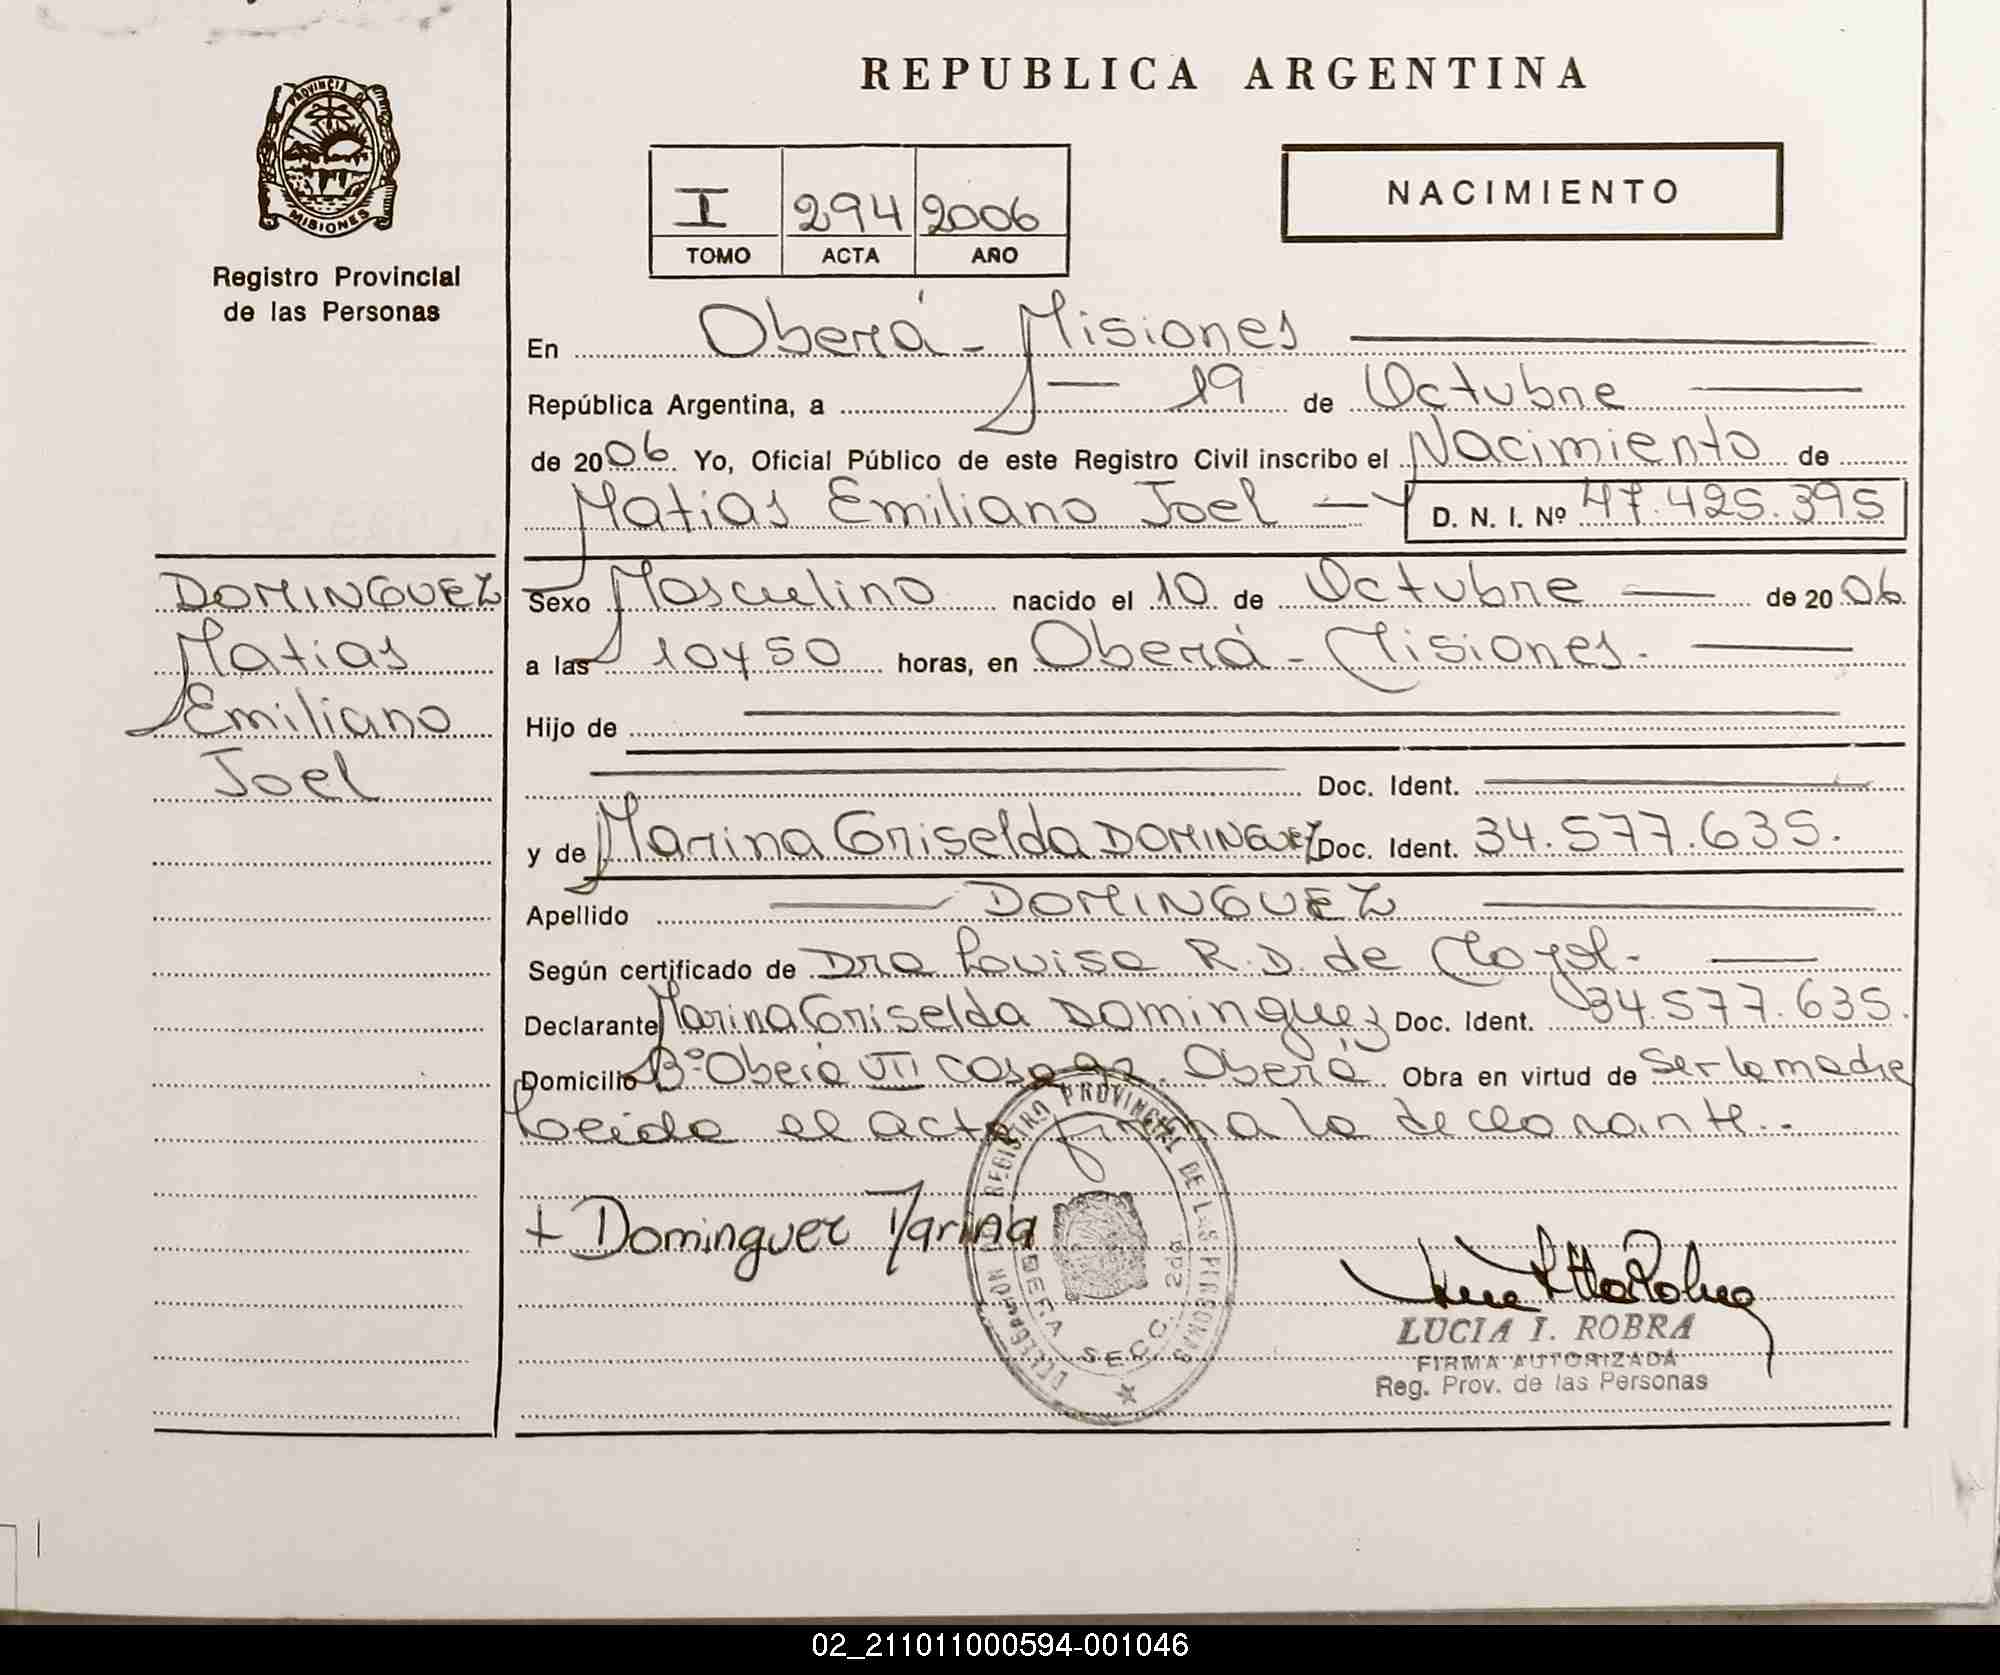 PROVINCIA DE
MISIONES
Registro Provincial
de las Personas
DOMINGUEZ
Matias
Emiliano
Joel
REPUBLICA ARGENTINA
I 294 2006
TOMO ACTA AÑO
NACIMIENTO
En Oberá - Misiones
República Argentina, a 19 de Octubre
de 2006 Yo, Oficial Público de este Registro Civil inscribo el Nacimiento de
Matias Emiliano Joel D. N. I. Nº 47.425.395
Sexo Masculino nacido el 10 de Octubre de 2006
a las 10 y 50 horas, en Oberá - Misiones.
Hijo de
Doc. Ident.
y de Marina Griselda DOMINGUEZ Doc. Ident. 34.577.635.
Apellido DOMINGUEZ
Según certificado de Dra Louisa R.D. de
Declarante Marina Griselda Dominguez Doc. Ident. 34.577.635.
Domicilio Bº Oberá VII casa Oberá Obra en virtud de ser la madre
Leida el acta firma la declarante.-
+ Dominguez Marina
DELEGACION REGISTRO PROVINCIAL DE LAS PERSONAS
SECC. 2da
LUCIA I. ROBRA
FIRMA AUTORIZADA
Reg. Prov. de las Personas
02_211011000594-001046